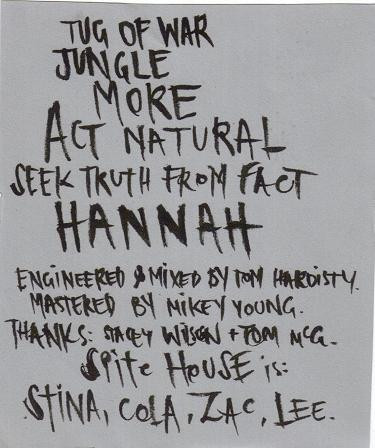 TUG OF WAR
JUNGLE
MORE
ACT NATURAL
SEEK TRUTH FROM FACT
HANNAH
ENGINEERED & MIXED BY TOM HARDISTY.
MASTERED BY MIKEY YOUNG.
THANKS: STACEY WILSON + TOM McG.
SPITE HOUSE is:
STINA, COLA, ZAC, LEE.